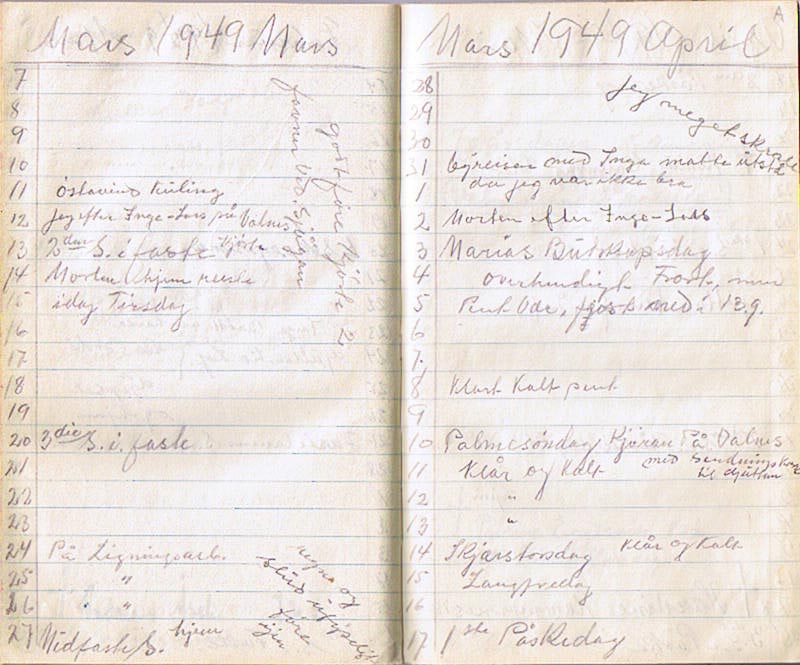 Mars 1949 Mars
7
8
9
10
11 östavind Kuling
12 Jeg efter Inge-Lars på Valnes
13 2den S. i faste Kjörte
14 Morten hjem reiste
15 idag Tirsdag
16
17
18
19
20 3die S. i. faste
21
22
23
24 På Ligningsarb.
25 "
26 " "
27 Midfaste S. hjem
godt före Kjörte 2
favner Ved.
regn og
slud
före
igjen
A
Mars 1949 April
28
29
30
Jeg meget
31 byreisen med Inga måtte utstå
da jeg var ikke bra
1
2 Morten efter Inge-Lars
3 Marias Budskapsdag
4 overhendigt Frost, men
5 Pent Vær, med i 13.g.
6
7
8 Klart Kalt pent
9
10 Palmesöndag Kjöran På Valnes
11 Klår og Kalt med
til
12 "
13 "
14 Skjærstorsdag Klår og Kalt
15 Langfredag
16
17 1ste Påskedag